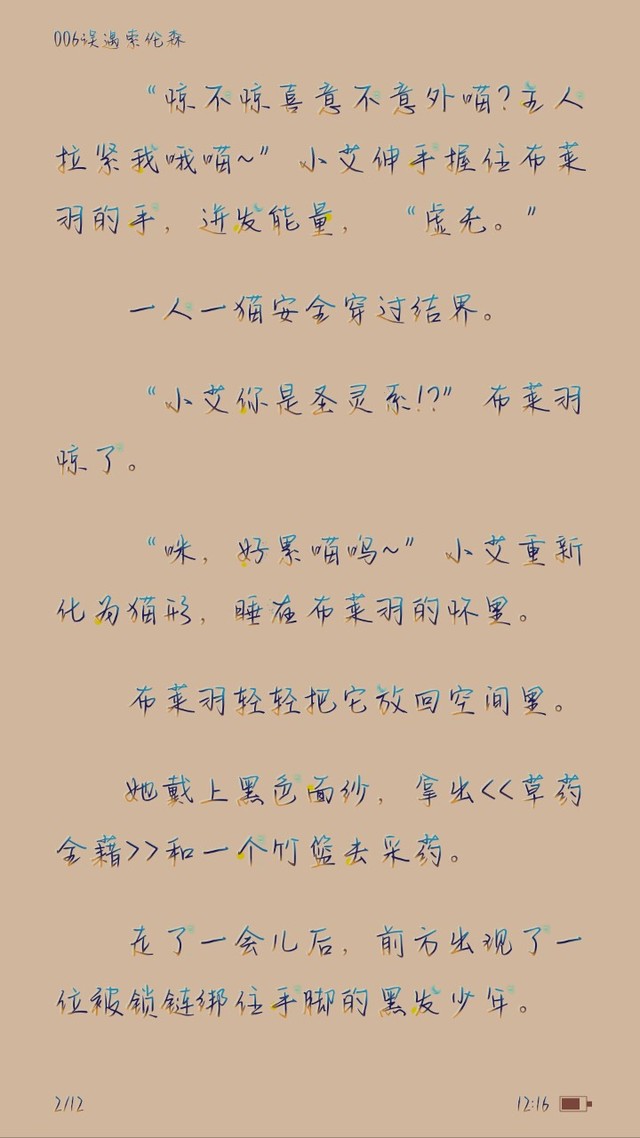 006误遇索伦森
“惊不惊喜意不意外喵?主人
拉紧我哦喵~” 小艾伸手握住布莱
羽的手，迸发能量， “虚无。”
一人一猫安全穿过结界。
“小艾你是圣灵系!?” 布莱羽
惊了。
“咪，好累喵呜~” 小艾重新
化为猫形，睡在布莱羽的怀里。
布莱羽轻轻把它放回空间里。
她戴上黑色面纱，拿出<<草药
全藉>>和一个竹篮去采药。
走了一会儿后，前方出现了一
位被锁链绑住手脚的黑发少年。
2/12
12:16